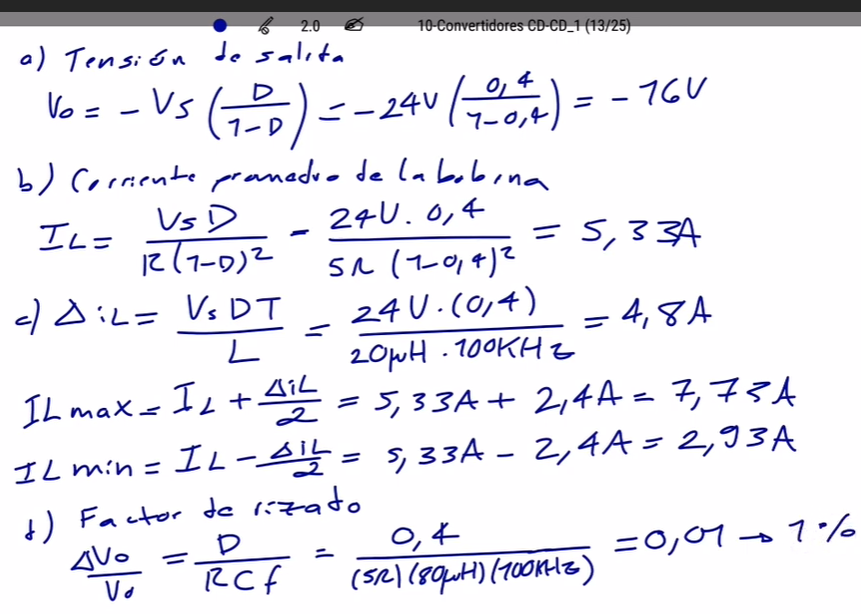 2.0 10-Convertidores CD-CD_1 (13/25)
a) Tensión de salida
Vo = - Vs (D/1-D) = -24V (0,4/1-0,4) = -16V
b) Corriente promedio de la bobina
IL = VsD/R(1-D)² - 24V. 0,4/5Ω (1-0,4)² = 5,33A
c) ΔiL = VsDT/L = 24V.(0,4)/20μH.100KHz = 4,8A
ILmax = IL + ΔiL/2 = 5,33A + 2,4A = 7,73A
ILmin = IL - ΔiL/2 = 5,33A - 2,4A = 2,93A
d) Factor de rizado
ΔVo/Vo = D/RCf = 0,4/(5Ω)(80μH)(100KHz) = 0,01 → 1%